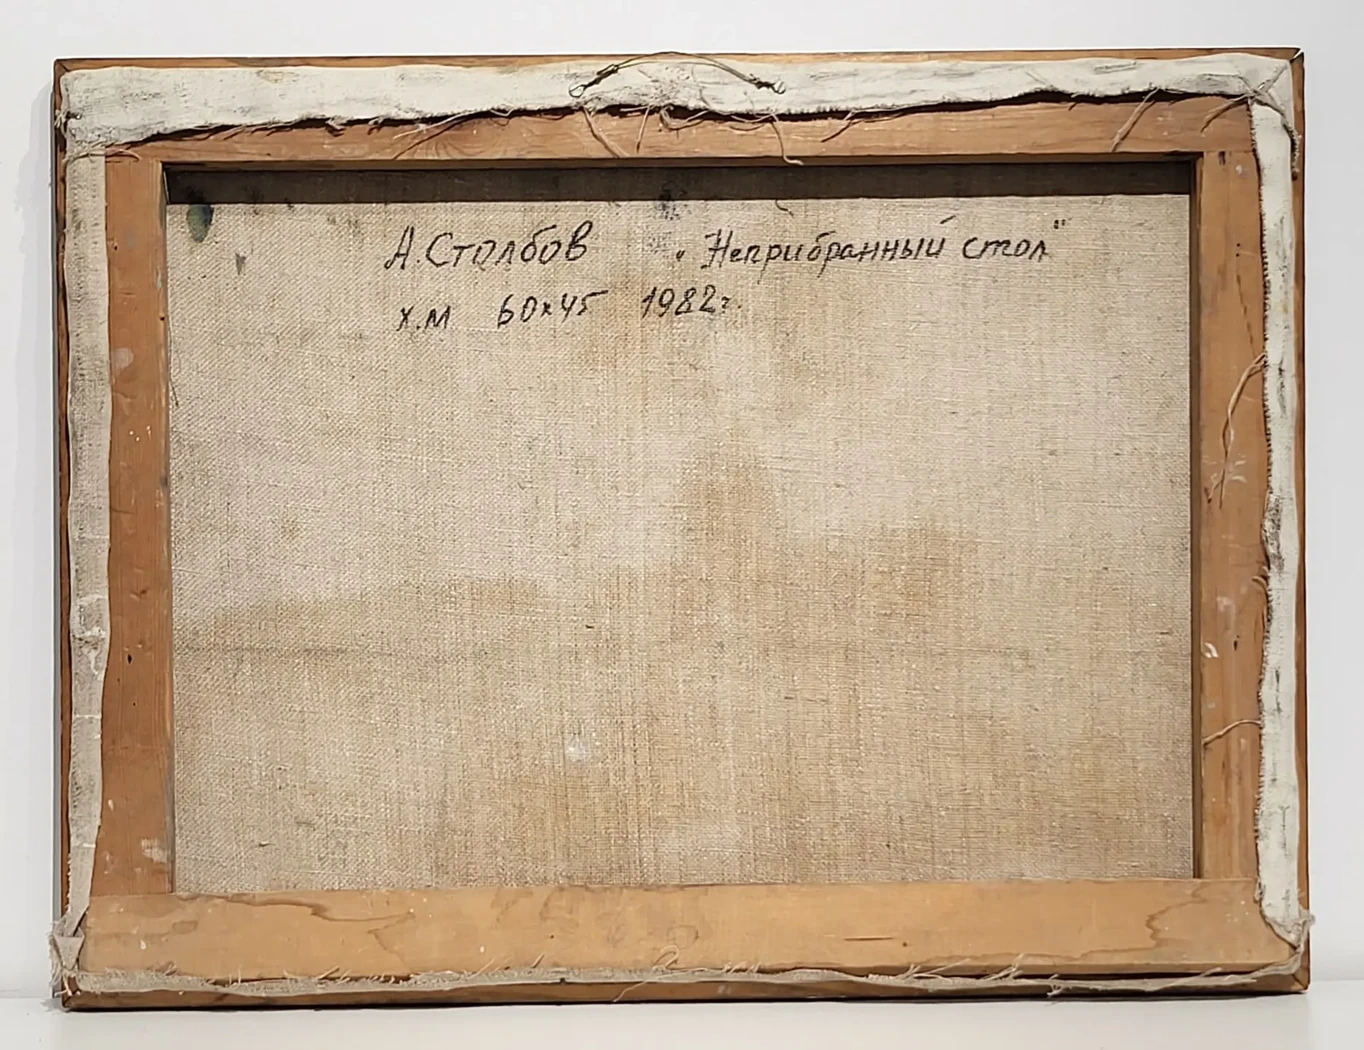 А.Столбов „Неприбранный стол"
х.м 60х45 1982г.